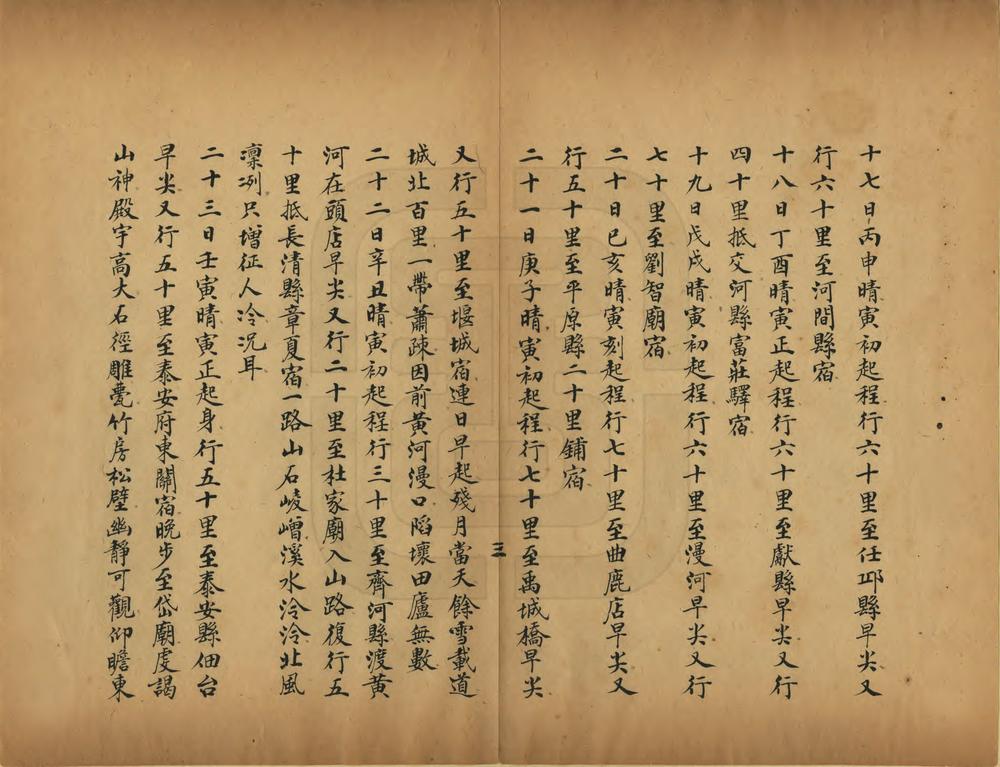 十七日丙申晴寅初起程行六十里至任邱縣早尖又
行六十里至河間縣宿
十八日丁酉晴寅正起程行六十里至獻縣早尖又行
四十里抵交河縣富莊驛宿
十九日戊戌晴寅初起程行六十里至漫河早尖又行
七十里至劉智廟宿
二十日己亥晴寅刻起程行七十里至曲鹿店早尖又
行五十里至平原縣二十里鋪宿
二十一日庚子晴寅初起程行七十里至禹城橋早尖
三
又行五十里至堰城宿連日早起殘月當天餘雪載道
城北百里一帶蕭疎因前黃河漫口䧟壞田廬無數
二十二日辛丑晴寅初起程行三十里至齊河縣渡黃
河在頭店早尖又行二十里至杜家廟入山路復行五
十里抵長清縣章夏宿一路山石崚嶒溪水泠泠北風
凜冽只增征人冷況耳
二十三日壬寅晴寅正起身行五十里至泰安縣佃台
早尖又行五十里至泰安府東關宿晚步至岱廟虔謁
山神殿宇高大石徑雕甍竹房松壁幽靜可觀仰瞻東